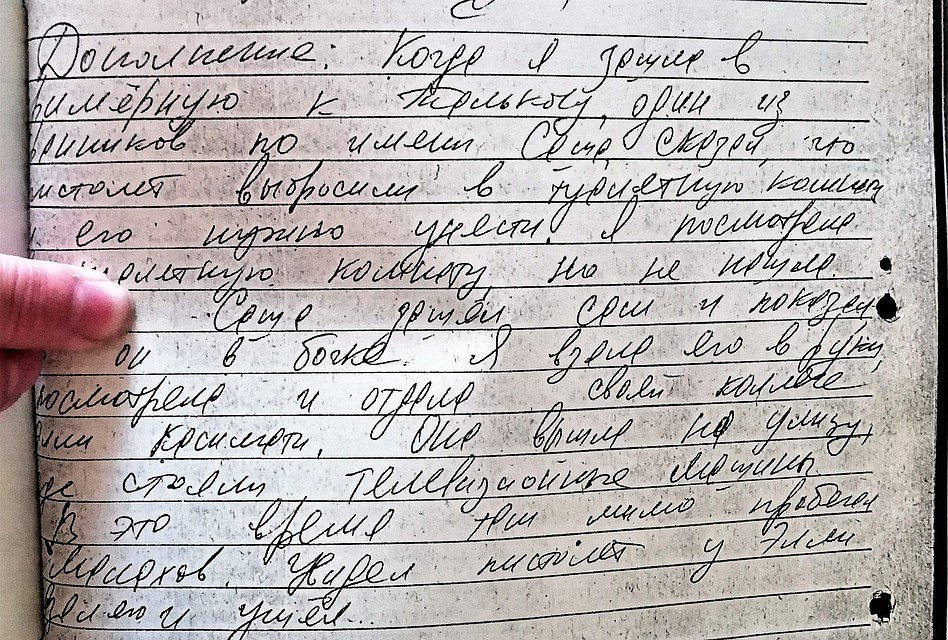 Дополнение: Когда я зашла в
римёрную к Талькову, один из
ранников по имени Саша сказал, что
истолет выбросили в туалетную комнату
и его нужно унести. Я посмотрела
туалетную комнату, но не нашла.
Саша зашёл сам и показал
он в бачке. Я взяла его в руки,
посмотрела и отдала своей коллеге
Элли Касимати. Она вышла на улицу,
где стояли телевизионные машины
В это время там мимо пробегал
Малахов. Увидел пистолет у Элли
и ушёл...